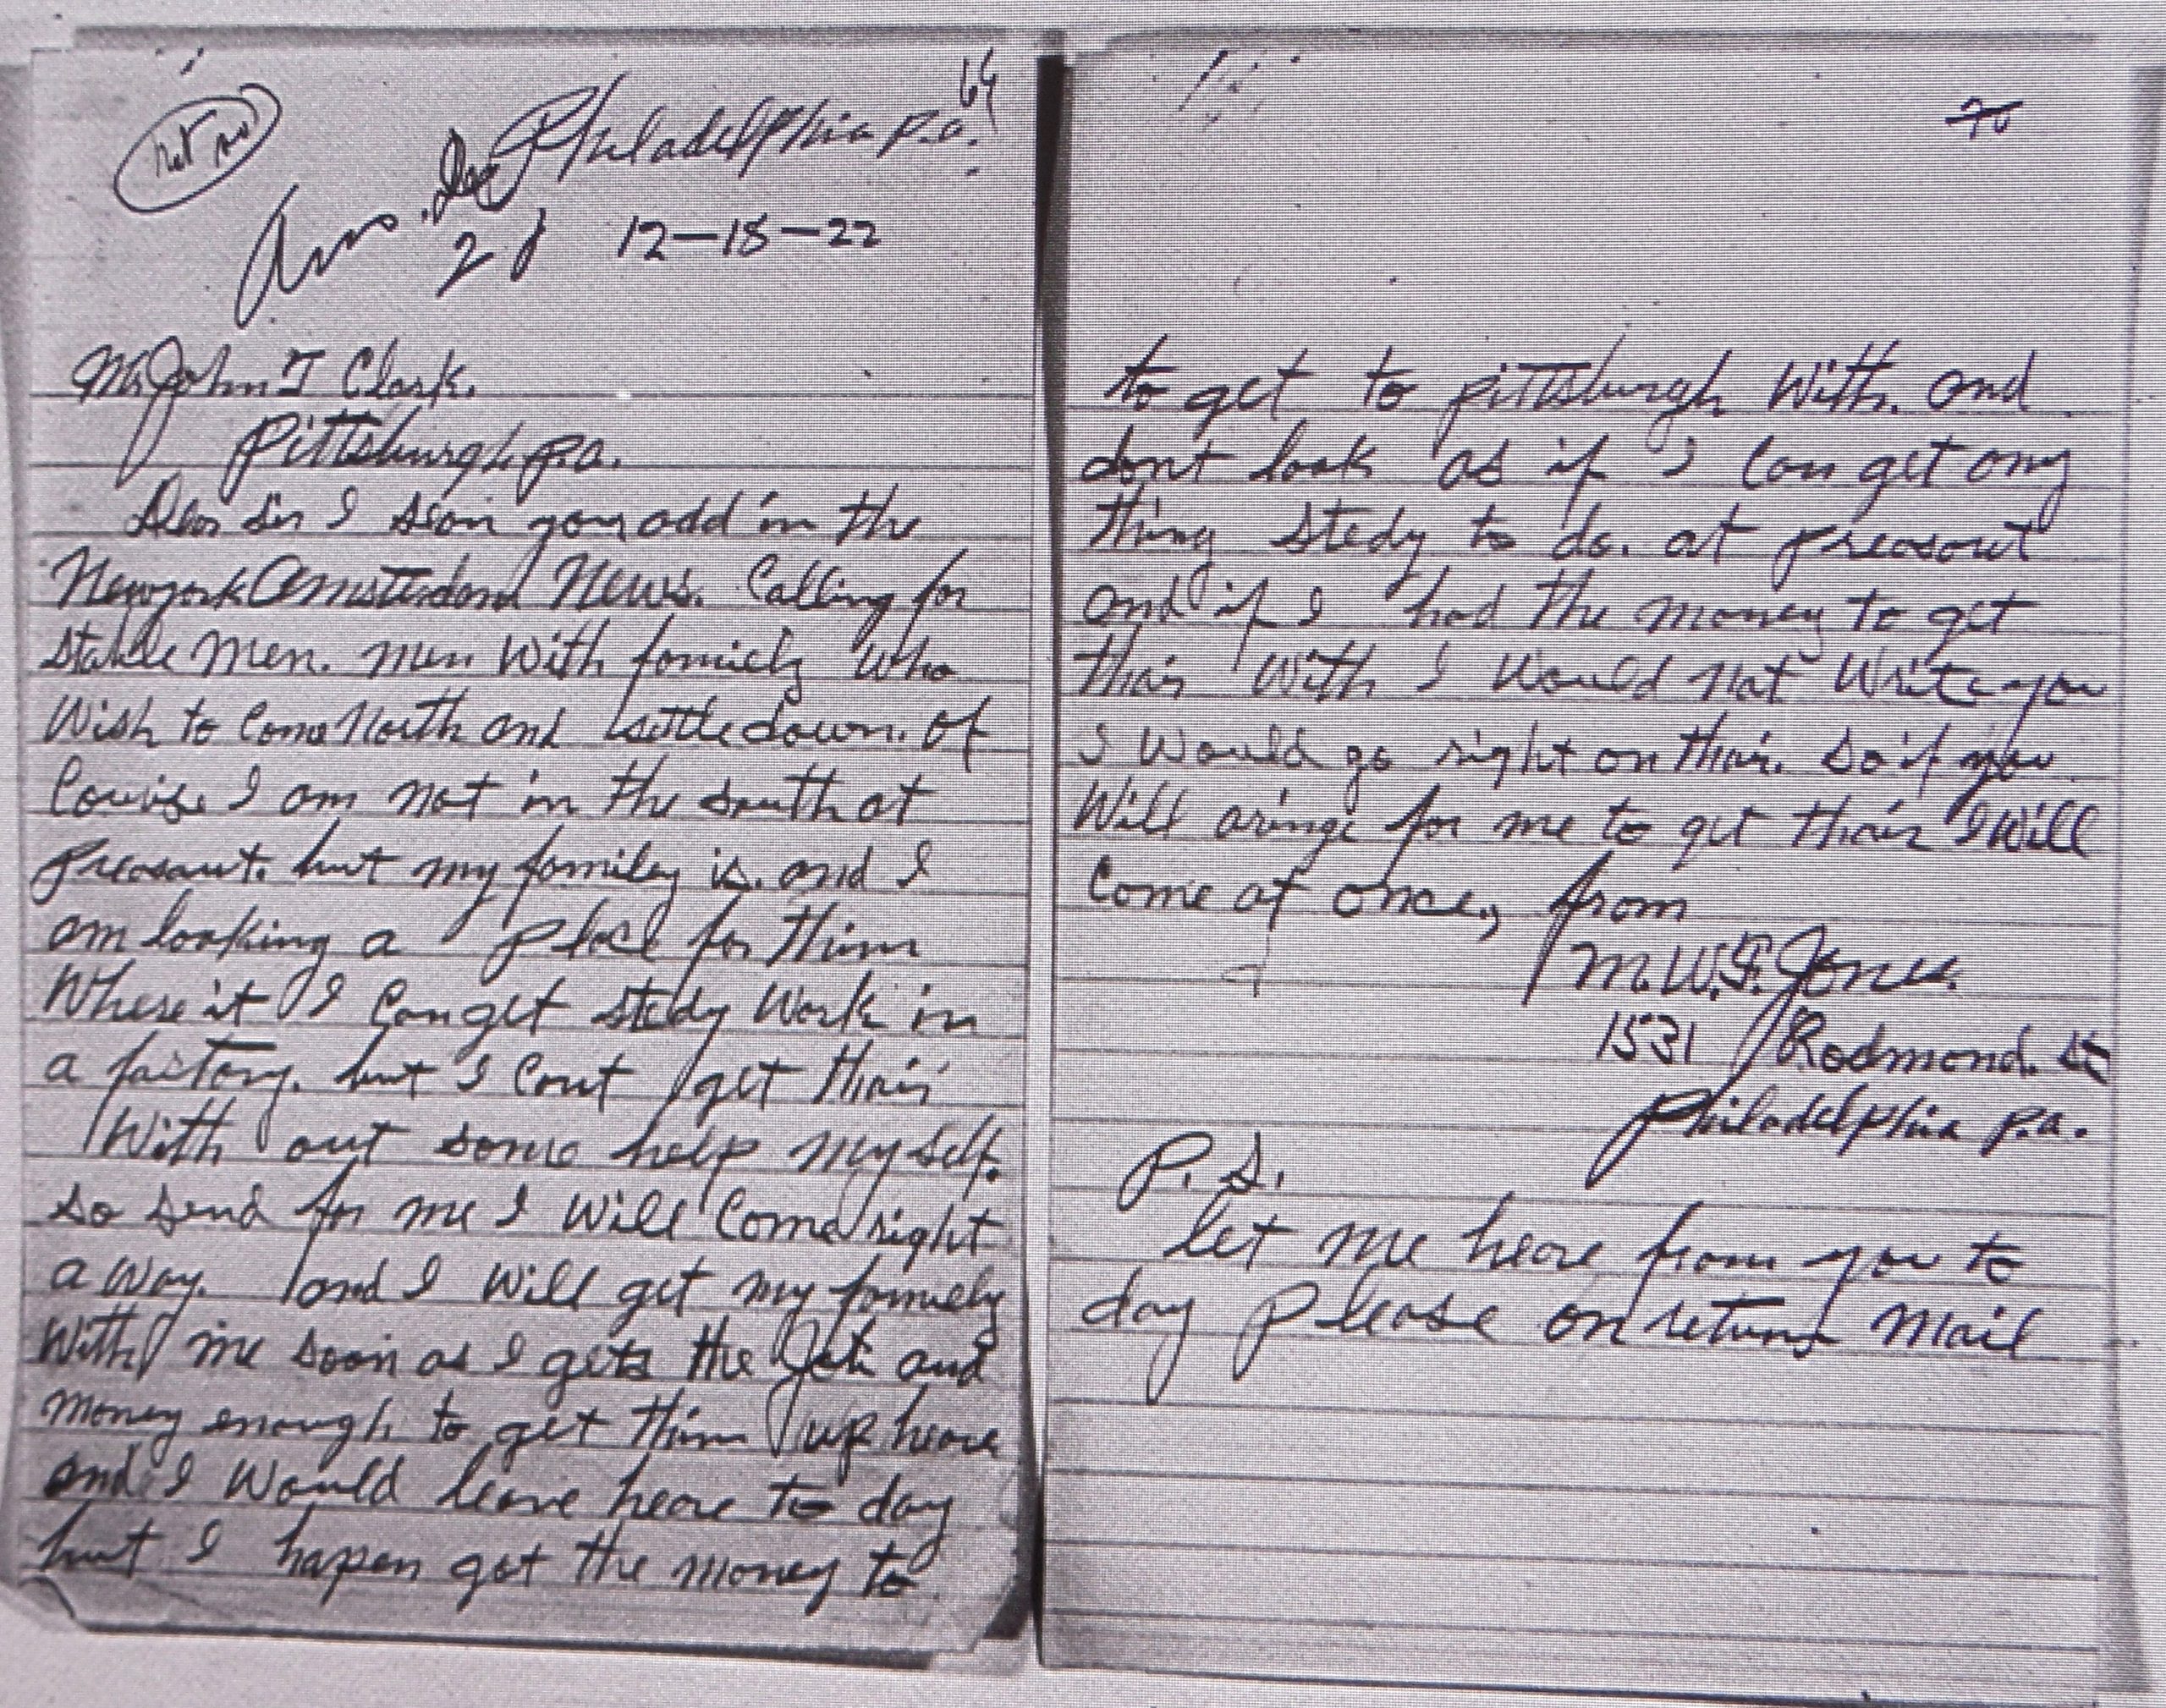 64
Philadelphia P.a.
Ans. Dec
21 12-18-22
Mr John T Clark.
Pittsburgh. P.a.
Dear Sir I sian you add in the
Newyork Amsterdand News. Calling for
stable men. men with famiely who
Wish to Come North and settle down. Of
Course I am not in the South at
preasant. but my family is. and I
am looking a place for them
Where it I Can get stedy Work in
a factory. but I Cant get thair
With out some help my self.
So send for me I will Come right
a way. and I will get my famiely
With me soon as I gets the Job and
money enough to get them up heare
and I Would leave heare to day
but I hapen got the money to
70
to get to pittsburgh With. and
dont look as if I Can get any
thing stedy to do. at preasant
and if I had the money to get
thair With I Would not Write you
I Would go right on thair. So if you
Will aringe for me to get thair I Will
Come at once, from
M. W. F. Jones.
1531 Rodmond. St
Philadelphia P.a.
P. S.
let me heare from you to
day please on return mail